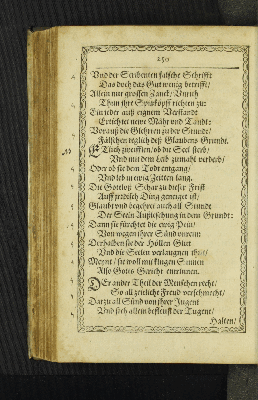 250
Und der Scribenten falsche Schrifft
Das doch das Gut wenig betrifft/
Allein nur grossen Zanck/ Unruh
Thun ihre richten zu:
Ein jeder auß eignem Verstandt
Ertichtet newe Mähr und Tandt:
Vorauß die Glehrten zu der Stundt/
Fälschen täglich deß Glaubens Grundt.
Etlich zweifflen/ ob die Seel sterb/
Und mit dem Leib zumahl verderb/
Oder ob sie dem Todt entgang/
Und leb in ewig Zeitten lang.
Die Gottloß Schar zu dieser Frist
Auff jrrdisch Ding geneiget ist/
Glaubt und begehret auch all Stundt
Der Seeln Außleschung in dem Grundt:
Dann sie fürchtet die ewig Pein/
Von wegen ihrer Sünd unrein
Derhalben sie der Höllen Glut
Und die Seelen verlaugnen thut/
Meynt/ sie woll mit klugen Sinnen
Also Gottes Gericht entrinnen.
Der ander Theil der Menschen recht/
So all zeitlich Freud verschmecht/
Darzu all Sünd von ihrer Jugent
Und sich allein befleist der Tugent/
Halten/